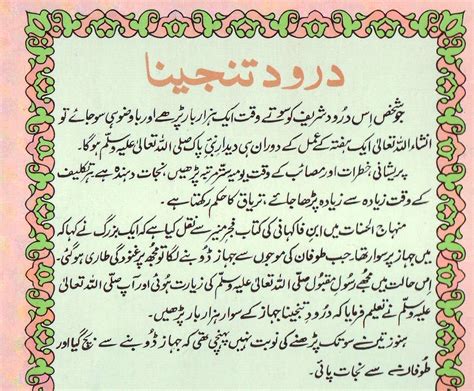 درود تنجینا
جو شخص اِس دُرود شریف کو سوتے وقت ایک ہزار بار پڑھے اور باوضو ہی سو جائے تو
انشاء اللہ تعالیٰ ایک ہفتہ کے عمل کے دوران ہی دیدار نبیِ پاک صلی اللہ تعالیٰ علیہ وسلّم ہوگا۔
پریشانی خطرات اور مصائب کے وقت یومیہ ستر مرتبہ پڑھیں، نجات دہندہ ہے ہر تکلیف
کے وقت زیادہ سے زیادہ پڑھا جائے، تریاق کا حکم رکھتا ہے۔
منہاج الحنات میں ابن فاکہانی کی کتاب فجر منیر سے نقل کیا ہے کہ ایک بزرگ نے کہا کہ
میں جہاز پر سوار تھا۔ جب طوفان کی موجوں سے جہاز ڈوبنے لگا تو مُجھ پر غنودگی طاری ہوگئی۔
اِس حالت میں مُجھے رسُولِ مقبُول صلی اللہ تعالیٰ علیہ وسلّم کی زیارت ہُوئی اور آپ صلی اللہ تعالیٰ
علیہ وسلّم نے تعلیم فرمایا کہ درُودِ تنجینا جہاز کے سوار ہزار بار پڑھیں۔
ہنوز تین سو تک پڑھنے کی نوبت نہیں پہنچی تھی کہ جہاز ڈُوبنے سے بچ گیا اور
طُوفان سے نجات پائی۔